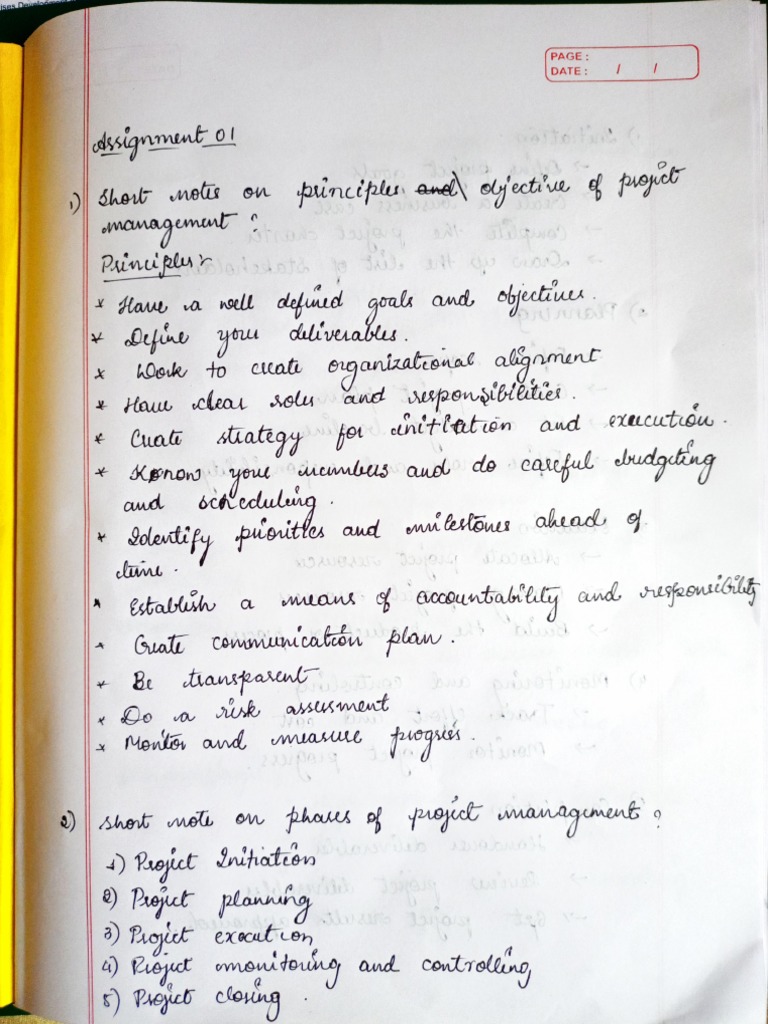 PAGE :
DATE : / /
Assignment 01
1) Short notes on principles and\ objective of project
management :
Principles :-
* Have a well defined goals and objectives.
* Define your deliverables.
* Work to create organizational alignment
* Have clear roles and responsibilities.
* Create strategy for initiation and execution.
* Know your members and do careful budgeting
and scheduling.
* Identify priorities and milestones ahead of
time.
* Establish a means of accountability and responsibility
* Create communication plan.
* Be transparent
* Do a risk assesment
* Monitor and measure progress.
2) Short note on phases of project management ?
1) Project Initiation
2) Project planning
3) Project execution
4) Project monitoring and controlling
5) Project closing.